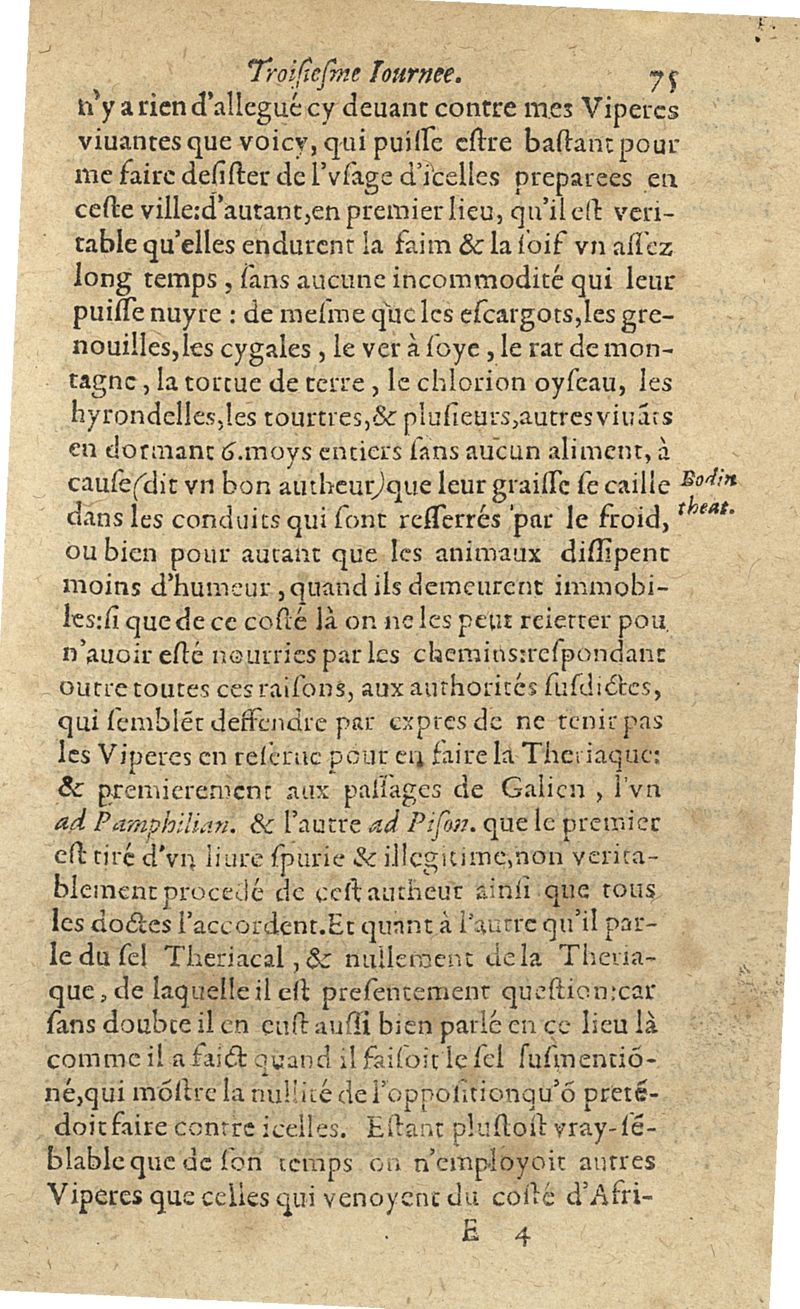 Troiſieſme Iournee. 75
n'y a rien d'allegué cy deuant contre mes Viperes
viuantes que voicy, qui puiſſe eſtre baſtant pour
me faire deſiſter de l'vſage d'icelles preparees en
ceſte ville:d'autant,en premier lieu, qu'il eſt veri-
table qu'elles endurent la faim & la ſoif vn aſſez
long temps, ſans aucune incommodité qui leur
puiſſe nuyre : de meſme que les eſcargots,les gre-
nouilles,les cygales, le ver à ſoye, le rat de mon-
tagne, la tortue de terre, le chlorion oyſeau, les
hyrondelles,les tourtres,& pluſieurs,autres viuãts
en dormant 6.moys entiers ſans aucun aliment, à
cauſe(dit vn bon autheur)que leur graiſſe ſe caille
Bodin
theat.
dans les conduits qui ſont reſſerrés par le froid,
ou bien pour autant que les animaux diſſipent
moins d'humeur, quand ils demeurent immobi-
les:ſi que de ce coſté là on ne les peut reietter pou
n'auoir eſté nourries par les chemins:reſpondant
outre toutes ces raiſons, aux authorités ſuſdictes,
qui ſemblẽt deffendre par expres de ne tenir pas
les Viperes en reſerue pour en faire la Theriaque:
& premierement aux paſſages de Galien, l'vn
ad Pamphilian. & l'autre ad Piſon. que le premier
eſt tiré d'vn liure ſpurie & illegitime,non verita-
blement procedé de ceſt autheur ainſi que tous
les doctes l'accordent.Et quant à l'autre qu'il par-
le du ſel Theriacal, & nullement de la Theria-
que, de laquelle il eſt preſentement queſtion:car
ſans doubte il en euſt auſſi bien parlé en ce lieu là
comme il a faict quand il faiſoit le ſel ſuſmentiõ-
né,qui mõſtre la nullité de l'oppoſitionqu'õ pretẽ-
doit faire contre icelles. Eſtant pluſtoſt vray-ſẽ-
blable que de ſon temps on n'employoit autres
Viperes que celles qui venoyent du coſté d'Afri-
E 4